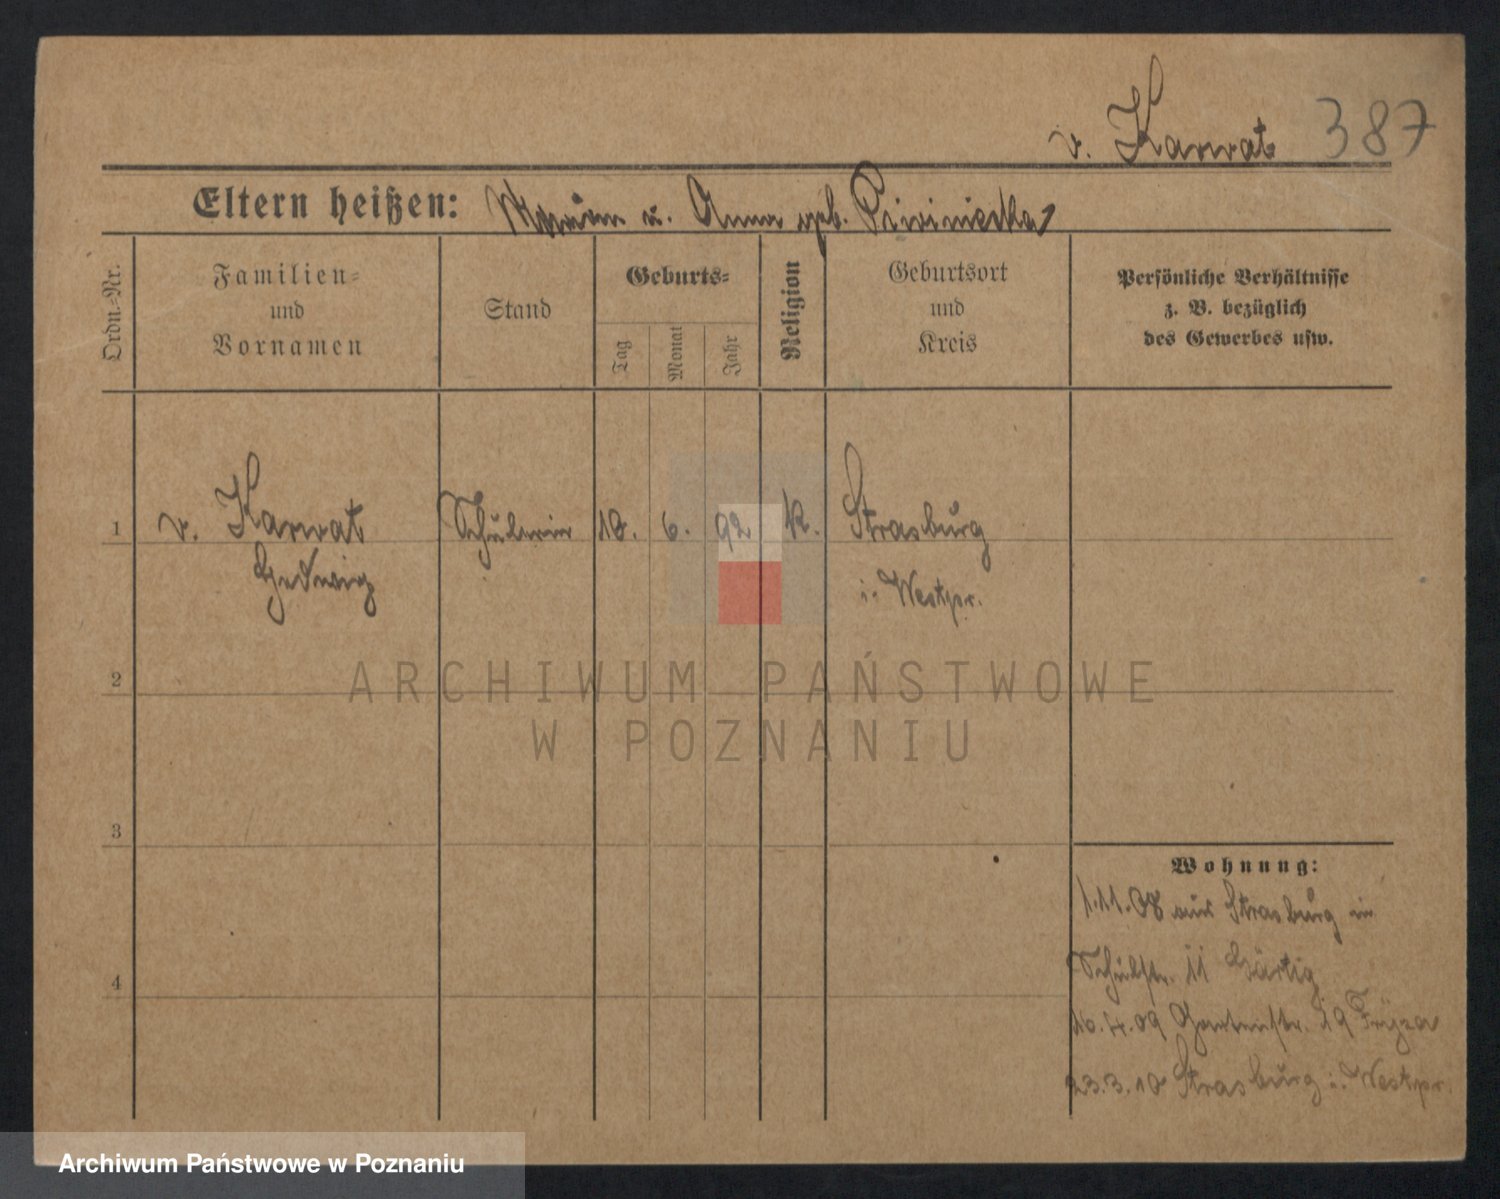 v. Karwat 387
Eltern heißen: Marian u. Anna geb.
Ordn.-Nr.
Familien-
und
Vornamen
Stand
Geburts-
Tag
Monat
Jahr
Religion
Geburtsort
und
Kreis
Persönliche Verhältnisse
z. B. bezüglich
des Gewerbes usw.
1 v. Karwat Schülerin 18. 6. 92 k. Strasburg
Hedwig i. Westpr.
2
3
4
Wohnung:
1.11.08 aus Strasburg in
Schulstr. 11 Härtig
16.4.09 Gartenstr. 19
23.3.10 Strasburg i. Westpr.
ARCHIWUM PAŃSTWOWE
W POZNANIU
Archiwum Państwowe w Poznaniu